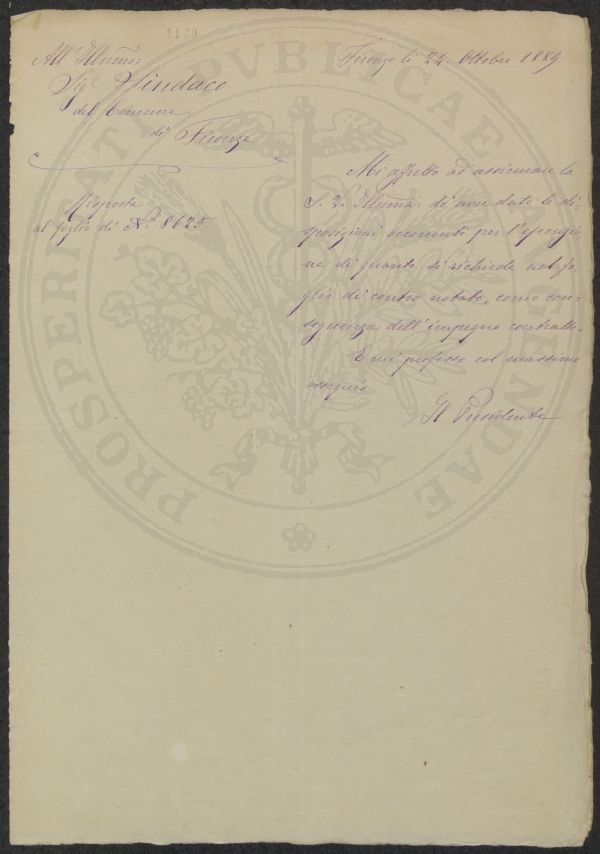 1169
All' Illūmo
Sigr Sindaco
del Comune
di Firenze
Risposta
al foglio di No 8675
Firenze li 24. Ottobre 1889
Mi affretto ad assicurare la
S. V. Illūma di aver date le di-
sposizioni occorrenti per l'esecuzio-
ne di quanto si richiede nel fo-
glio di contro notato, come con-
seguenza dell'impegno contratto.
E mi professo col massimo
ossequio
Il Presidente
PROSPERITATI PVBLICAE AVGENDAE